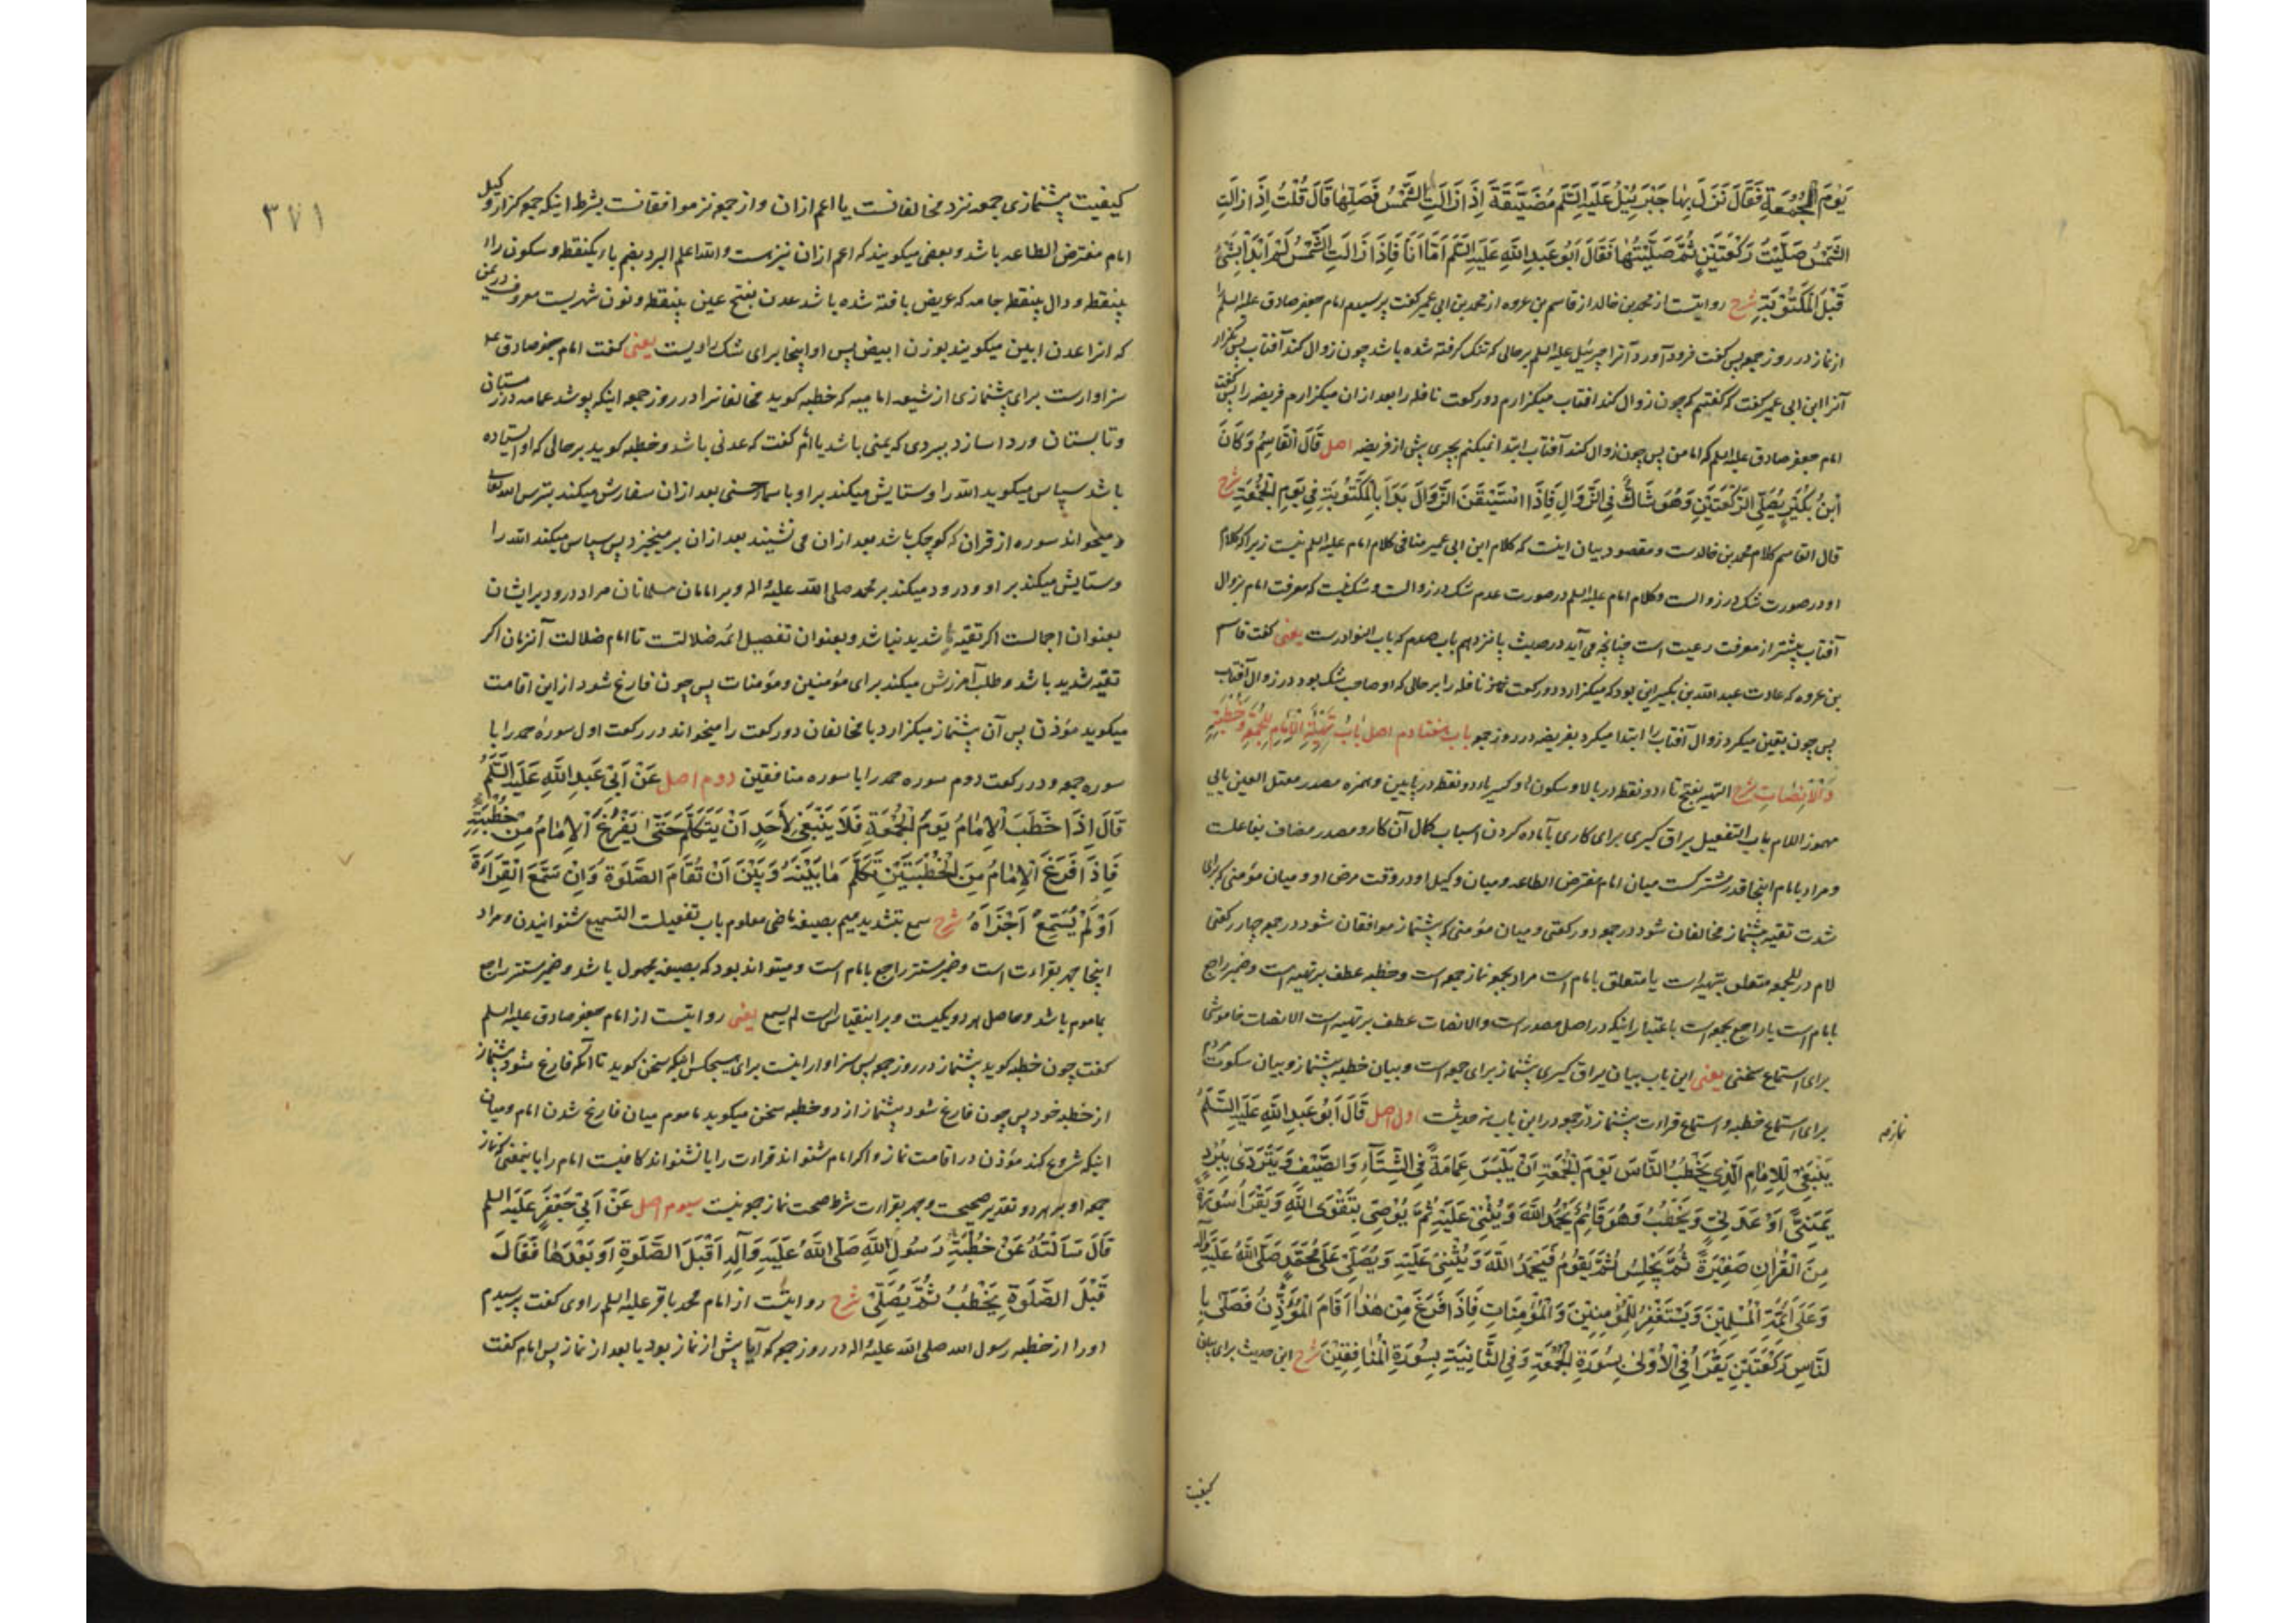 يَوْمَ الْجُمُعَةِ فَقَالَ نَزَلَ بِهَا جَبْرَئِيلُ عَلَيْهِ السَّلَم مُضَيَّقَةً اِذَا زَالَتِ الشَّمْسُ فَصَلِّهَا قَالَ قُلْتُ اِذَا زَالَتِ
الشَّمْسُ صَلَّيْتُ رَكْعَتَيْنِ ثُمَّ صَلَّيْتُهَا فَقَالَ اَبُو عَبْدِ اللَّهِ عَلَيْهِ السَّلَم اَمَّا اَنَا فَاِذَا زَالَتِ الشَّمْسُ لَمْ اَبْدَأْ بِشَيْءٍ
قَبْلَ الْمَكْتُوبَةِ شرح روایتست از محمد بن خالد از قاسم بن عروه از محمد بن ابی عمیر گفت پرسیدم امام جعفر صادق علیه السلم را
از نماز در روز جمعه پس گفت فرود آورد آنرا جبرئیل علیه السلم بر حالی که تنگ گرفته شده باشد چون زوال کند آفتاب پس بگزار
آنرا ابن ابی عمیر گفت که گفتم که چون زوال کند افتاب میگزارم دو رکعت نافله را بعد ازان میگزارم فریضه را پس گفت
امام جعفر صادق علیه السلم که اما من پس چون زوال کند آفتاب ابتدا نمیکنم بچیزی پیش از فریضه اصل قَالَ الْقَاسِمُ وَكَانَ
ابْنُ بُكَيْرٍ يُصَلِّي الرَّكْعَتَيْنِ وَهُوَ شَاكٌّ فِي الزَّوَالِ فَاِذَا اسْتَيْقَنَ الزَّوَالَ بَدَأَ بِالْمَكْتُوبَةِ فِي يَوْمِ الْجُمُعَةِ شرح
قال القاسم کلام محمد بن خالدست و مقصود بیان اینست که کلام ابن ابی عمیر منافی کلام امام علیه السلم نیست زیرا که کلام
او در صورت شک در زوالست و کلام امام علیه السلم در صورت عدم شک در زوالست و شک نیست که معرفت امام بزوال
آفتاب بیشتر از معرفت رعیت است چنانچه می آید در حدیث پانزدهم باب صدم که باب النوادرست یعنی گفت قاسم
بن عروه که عادت عبد الله بن بکیر این بود که میگزارد دو رکعت نماز نافله را بر حالی که او صاحب شک بود در زوال آفتاب
پس چون یقین میکرد زوال آفتاب را ابتدا میکرد بفریضه در روز جمعه باب هفتادم اصل بَابُ تَهْيِئَةِ الْاِمَامِ لِلْجُمُعَةِ وَخُطْبَتِهِ
وَالْاِنْصَاتِ شرح التهیه بفتح تاء دو نقطه در بالا و سکون هاء و کسر یاء دو نقطه در پایین و همزه مصدر معتل العین یایی
مهموز اللام باب التفعیل یراق گیری برای کاری باآماده کردن اسباب کمال آن کار و مصدر مضاف بفاعلست
و مراد بامام اینجا قدر مشترکست میان امام مفترض الطاعه و میان وکیل او در وقت مرض او و میان مؤمنی که برای
شدت تقیه پیشنماز مخالفان شود در جمعه دو رکعتی و میان مؤمنی که پیشنماز موافقان شود در جمعه چار رکعتی
لام در للجمعه متعلق بتهیه است یا متعلق بامام است مراد بجمعه نماز جمعه است و خطبه عطف بر تهیه است و ضمیر راجع
بامام است یا راجع بجمعه است باعتبار اینکه در اصل مصدر است والانصات عطف بر تهیه است الانصات خاموشی
برای استماع سخنی یعنی این باب بیان یراق گیری پیشنماز برای جمعه است و بیان خطبه پیشنماز و بیان سکوت مردم
برای استماع خطبه و استماع قراءت پیشنماز در جمعه در این باب نه حدیثست اول اصل قَالَ اَبُو عَبْدِ اللَّهِ عَلَيْهِ السَّلَمُ
يَنْبَغِي لِلْاِمَامِ الَّذِي يَخْطُبُ النَّاسَ يَوْمَ الْجُمُعَةِ اَنْ يَلْبَسَ عِمَامَةً فِي الشِّتَاءِ وَالصَّيْفِ وَيَتَرَدَّى بِبُرْدٍ
يَمَنِيٍّ اَوْ عَدَنِيٍّ وَيَخْطُبُ وَهُوَ قَائِمٌ يَحْمَدُ اللَّهَ وَيُثْنِي عَلَيْهِ ثُمَّ يُوصِي بِتَقْوَى اللَّهِ وَيَقْرَأُ سُورَةً
مِنَ الْقُرْاٰنِ صَغِيرَةً ثُمَّ يَجْلِسُ ثُمَّ يَقُومُ فَيَحْمَدُ اللَّهَ وَيُثْنِي عَلَيْهِ وَيُصَلِّي عَلَى مُحَمَّدٍ صَلَّى اللَّهُ عَلَيْهِ وَآلِهِ
وَعَلَى اَئِمَّةِ الْمُسْلِمِينَ وَيَسْتَغْفِرُ لِلْمُؤْمِنِينَ وَالْمُؤْمِنَاتِ فَاِذَا فَرَغَ مِنْ هٰذَا اَقَامَ الْمُؤَذِّنُ فَصَلَّى بِا
لنَّاسِ رَكْعَتَيْنِ يَقْرَأُ فِي الْاُولَى بِسُورَةِ الْجُمُعَةِ وَفِي الثَّانِيَةِ بِسُورَةِ الْمُنَافِقِينَ شرح این حدیث برای بیان
کیفیت
۳۷۱
کیفیت پیشنمازی جمعه نزد مخالفانست یا اعم ازان و از جمعه نزد موافقانست بشرط اینکه جمعه گزار وکیل
امام مفترض الطاعه باشد و بعضی میگویند که اعم ازان نیز هست والله اعلم البرد بضم باء یکنقطه و سکون راء
بینقطه و دال بینقطه جامه که عریض بافته شده باشد عدن بفتح عین بینقطه و نون شهریست معروف در یمن
که انرا عدن ابین میگویند بوزن ابیض پس او اینجا برای شک راویست یعنی گفت امام جعفر صادق علیه
سزاوارست برای پیشنمازی از شیعه امامیه که خطبه گوید مخالفانرا در روز جمعه اینکه پوشد عمامه در زمستان
و تابستان و ردا سازد ببردی که یمنی باشد یا امام گفت که عدنی باشد و خطبه گوید بر حالی که او ایستاده
باشد سپاس میگوید الله را و ستایش میکند بر او باسماء حسنی بعد ازان سفارش میکند بترس الله تعالی
و میخواند سوره از قران که کوچک باشد بعد ازان می نشیند بعد ازان بر میخیزد پس سپاس میکند الله را
و ستایش میکند بر او و درود میکند بر محمد صلی الله علیه واله و بر امامان مسلمانان مراد درود بر ایشان
بعنوان اجمالست اگر تقیه شدید نباشد و بعنوان تفصیل ائمه ضلالتست تا امام ضلالت آنزمان اگر
تقیه شدید باشد و طلب آمرزش میکند برای مؤمنین و مؤمنات پس چون فارغ شود از این اقامت
میگوید مؤذن پس آن پیشنماز میگزارد با مخالفان دو رکعت را میخواند در رکعت اول سوره حمد را با
سوره جمعه و در رکعت دوم سوره حمد را با سوره منافقین دوم اصل عَنْ اَبِي عَبْدِ اللَّهِ عَلَيْهِ السَّلَمُ
قَالَ اِذَا خَطَبَ الْاِمَامُ يَوْمَ الْجُمُعَةِ فَلَا يَنْبَغِي لِاَحَدٍ اَنْ يَتَكَلَّمَ حَتَّى يَفْرُغَ الْاِمَامُ مِنْ خُطْبَتِهِ
فَاِذَا فَرَغَ الْاِمَامُ مِنَ الْخُطْبَتَيْنِ تَكَلَّمَ مَا بَيْنَهُ وَبَيْنَ اَنْ تُقَامَ الصَّلٰوةُ وَاِنْ سَمَّعَ الْقِرَاءَةَ
اَوْ لَمْ يُسَمِّعْ اَجْزَاَهُ شرح سمع بتشدید میم بصیغه ماضی معلوم باب تفعیلست التسمیع شنوانیدن و مراد
اینجا جهر بقراءت است و ضمیر مستتر راجع بامام است و میتواند بود که بصیغه مجهول باشد و ضمیر مستتر راجع
بماموم باشد و حاصل هر دو یکیست و بر اینقیاس است لم یسمع یعنی روایتست از امام جعفر صادق علیه السلم
گفت چون خطبه گوید پیشنماز در روز جمعه پس سزاوار اینست برای هیچکس اینکه سخن گوید تا آنکه فارغ شود پیشنماز
از خطبه خود پس چون فارغ شود پیشنماز از دو خطبه سخن میگوید ماموم میان فارغ شدن امام و میان
اینکه شروع کند مؤذن در اقامت نماز و اگر امام شنواند قراءت را یا نشنواند کافیست امام را یا بمعنی که نماز
جمعه او بر هر دو تقدیر صحیحست و جهر بقراءت شرط صحت نماز جمعه نیست سیوم اصل عَنْ اَبِي جَعْفَرٍ عَلَيْهِ السلم
قَالَ سَاَلْتُهُ عَنْ خُطْبَةِ رَسُولِ اللَّهِ صَلَّى اللَّهُ عَلَيْهِ وَآلِهِ اَقَبْلَ الصَّلٰوةِ اَوْ بَعْدَهَا فَقَالَ
قَبْلَ الصَّلٰوةِ يَخْطُبُ ثُمَّ يُصَلِّي شرح روایتست از امام محمد باقر علیه السلم راوی گفت پرسیدم
اورا از خطبه رسول الله صلی الله علیه واله در روز جمعه که آیا پیش از نماز بود یا بعد از نماز پس امام گفت